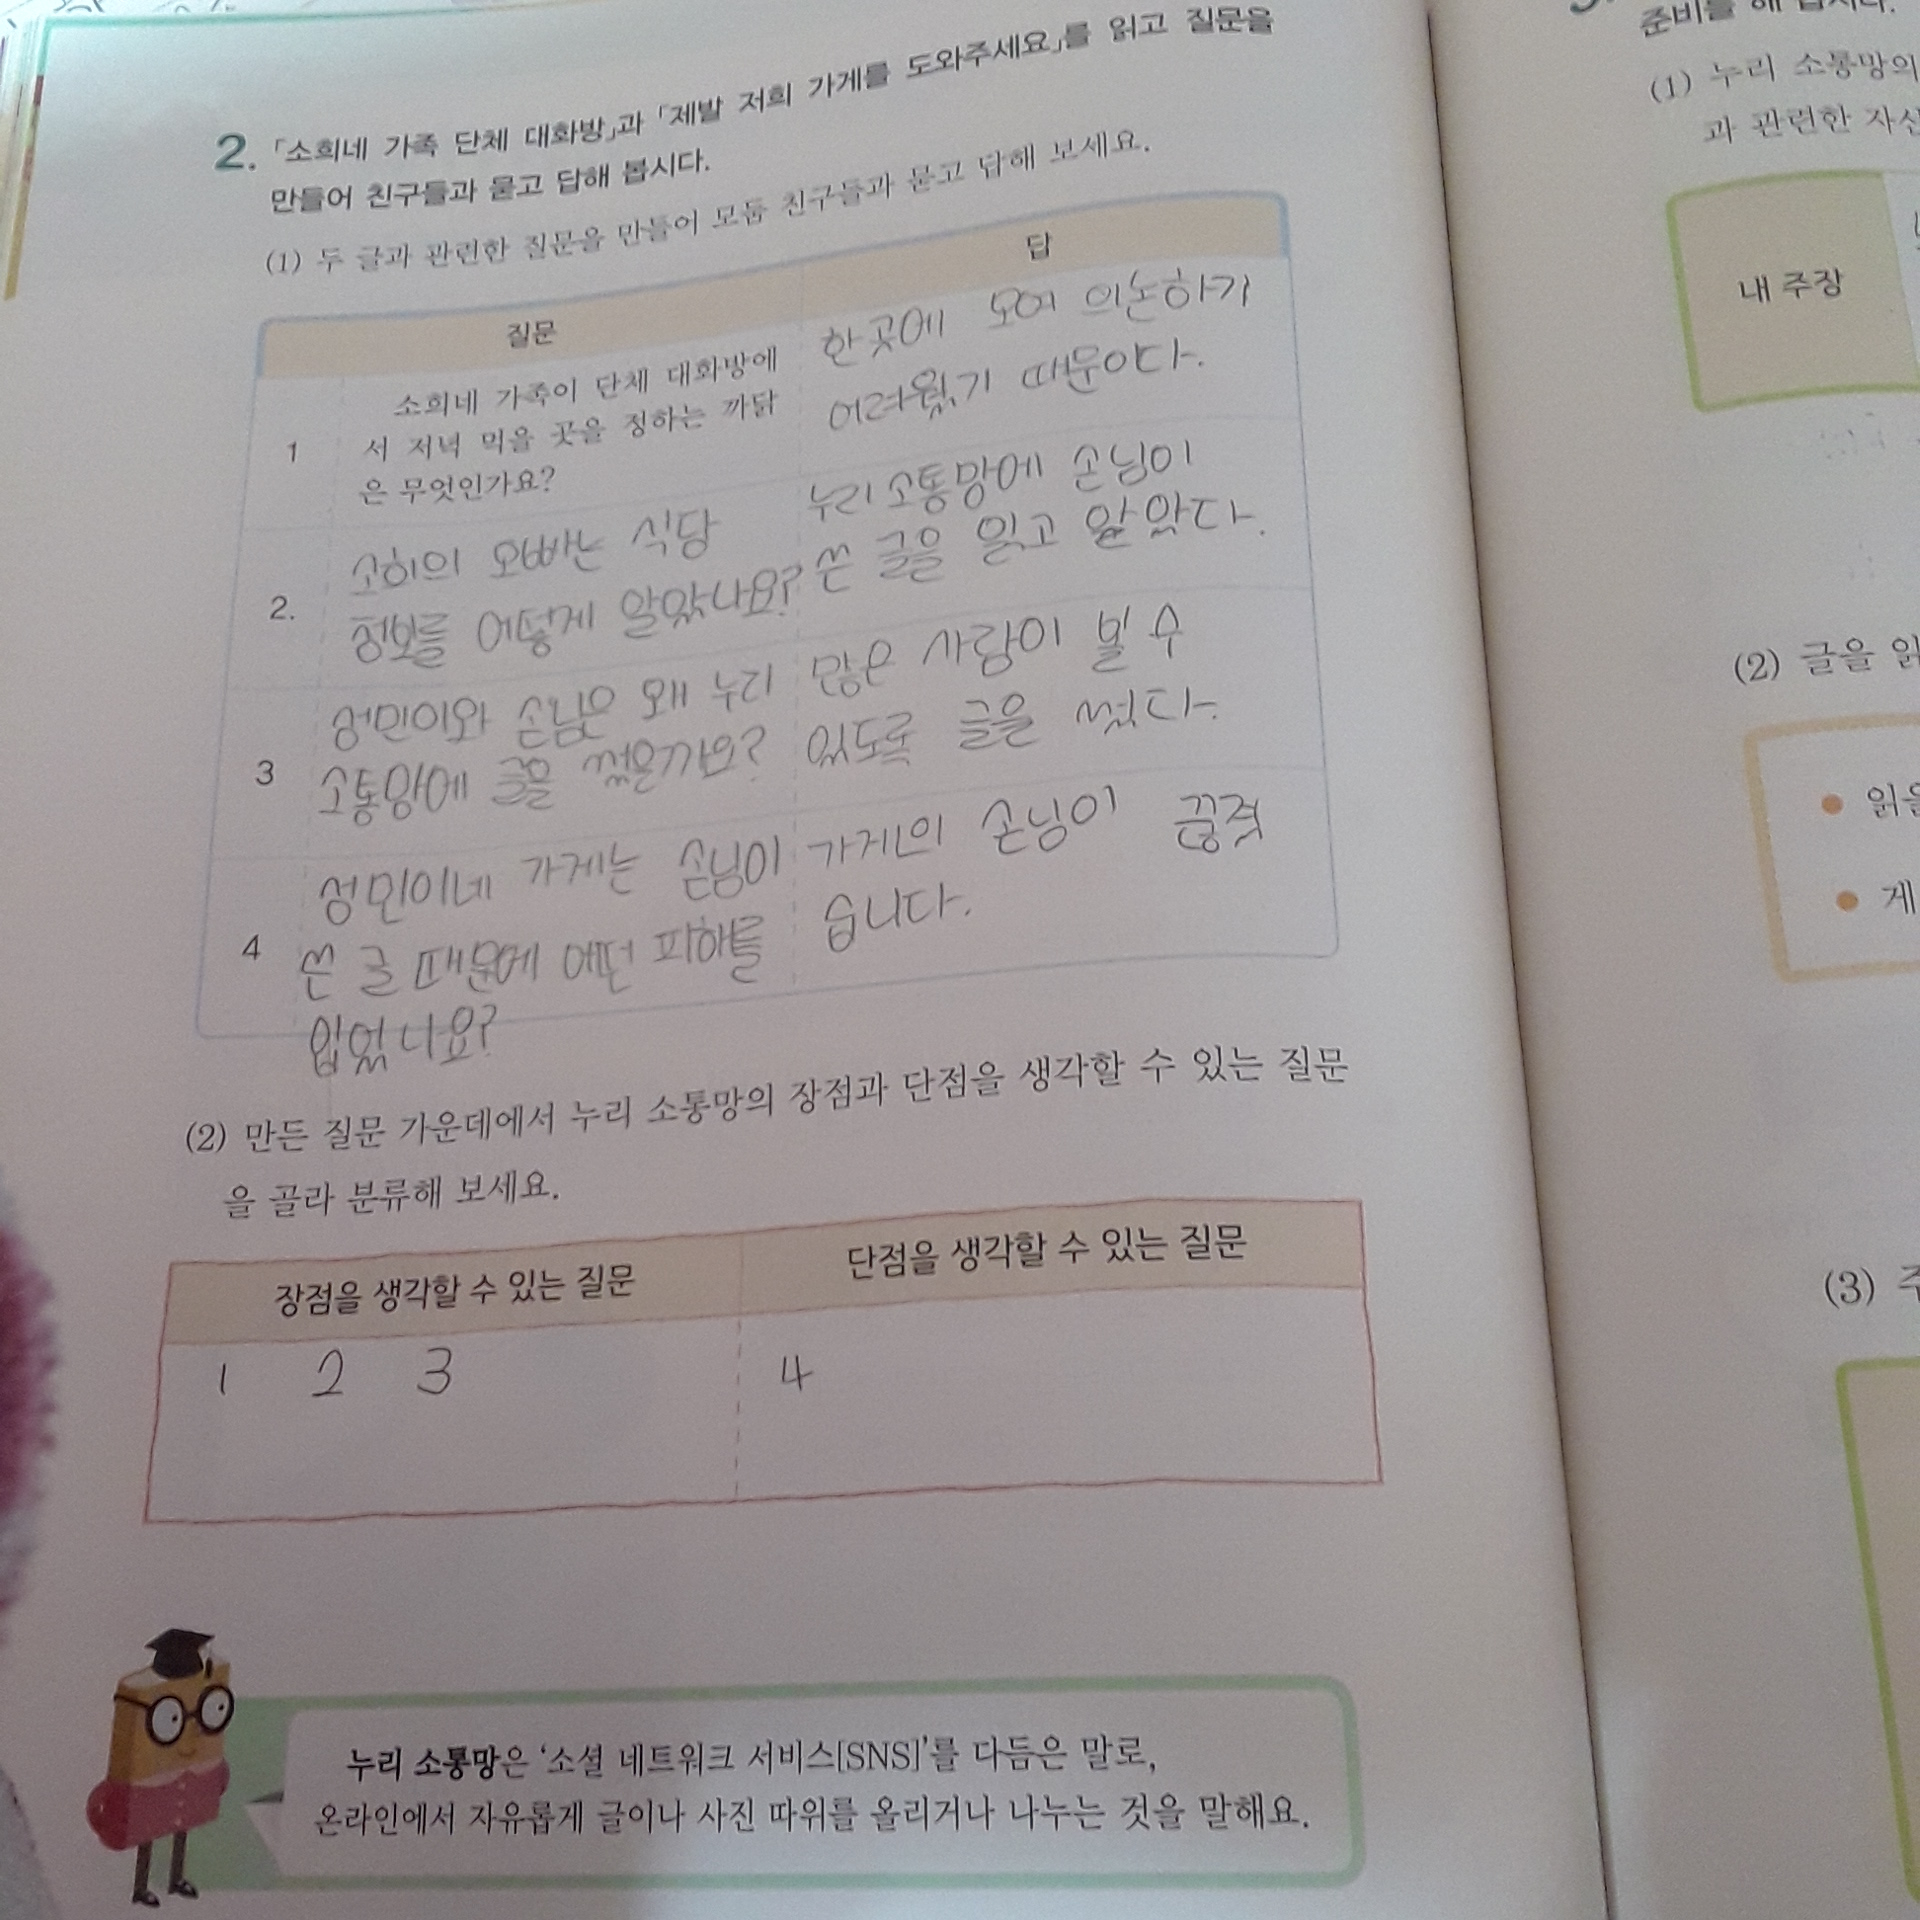 2. 「소희네 가족 단체 대화방」과 「제발 저희 가게를 도와주세요」를 읽고 질문을
만들어 친구들과 묻고 답해 봅시다.
(1) 두 글과 관련한 질문을 만들어 모둠 친구들과 묻고 답해 보세요.
질문
답
1
소희네 가족이 단체 대화방에
서 저녁 먹을 곳을 정하는 까닭
은 무엇인가요?
한곳에 모여 의논하기
어려웠기 때문이다.
2.
소희의 오빠는 식당
정보를 어떻게 알았나요?
누리소통망에 손님이
쓴 글을 읽고 알았다.
3
성민이와 손님은 왜 누리
소통망에 글을 썼을까요?
많은 사람이 볼 수
있도록 글을 썼다.
4
성민이네 가게는 손님이
쓴 글 때문에 어떤 피해를
입었나요?
가게의 손님이 끊겼
습니다.
(2) 만든 질문 가운데에서 누리 소통망의 장점과 단점을 생각할 수 있는 질문
을 골라 분류해 보세요.
장점을 생각할 수 있는 질문
단점을 생각할 수 있는 질문
1 2 3
4
누리 소통망은 ‘소셜 네트워크 서비스[SNS]’를 다듬은 말로,
온라인에서 자유롭게 글이나 사진 따위를 올리거나 나누는 것을 말해요.
준비를 해 봅시다.
(1) 누리 소통망의
과 관련한 자신
내 주장
(2) 글을 읽
• 읽을
• 게
(3) 주